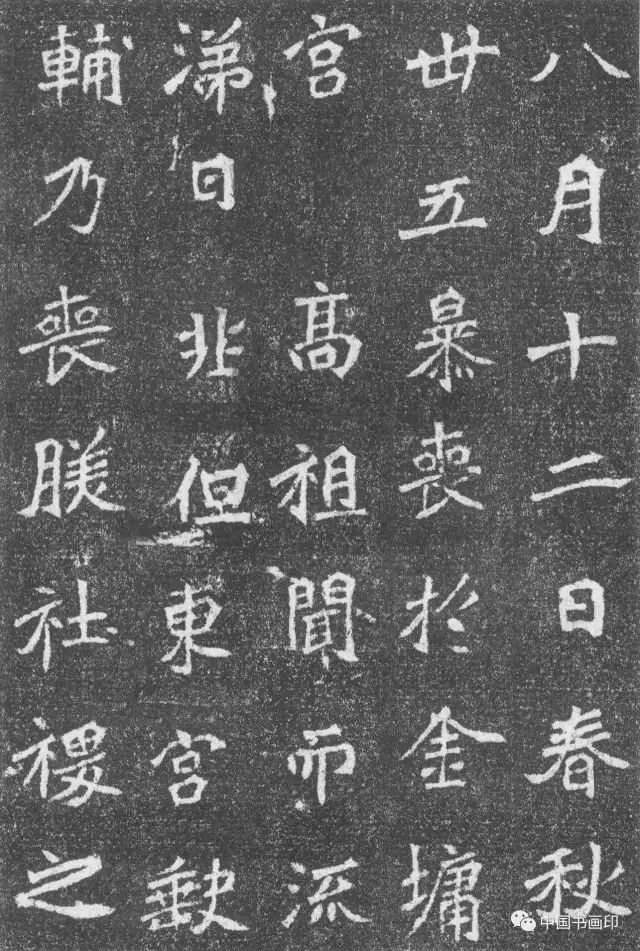 八月十二日春秋
卅五暴喪於金墉
宮 髙祖聞而流
涕曰非但東宮缺
輔乃喪朕社稷之
中国书画印